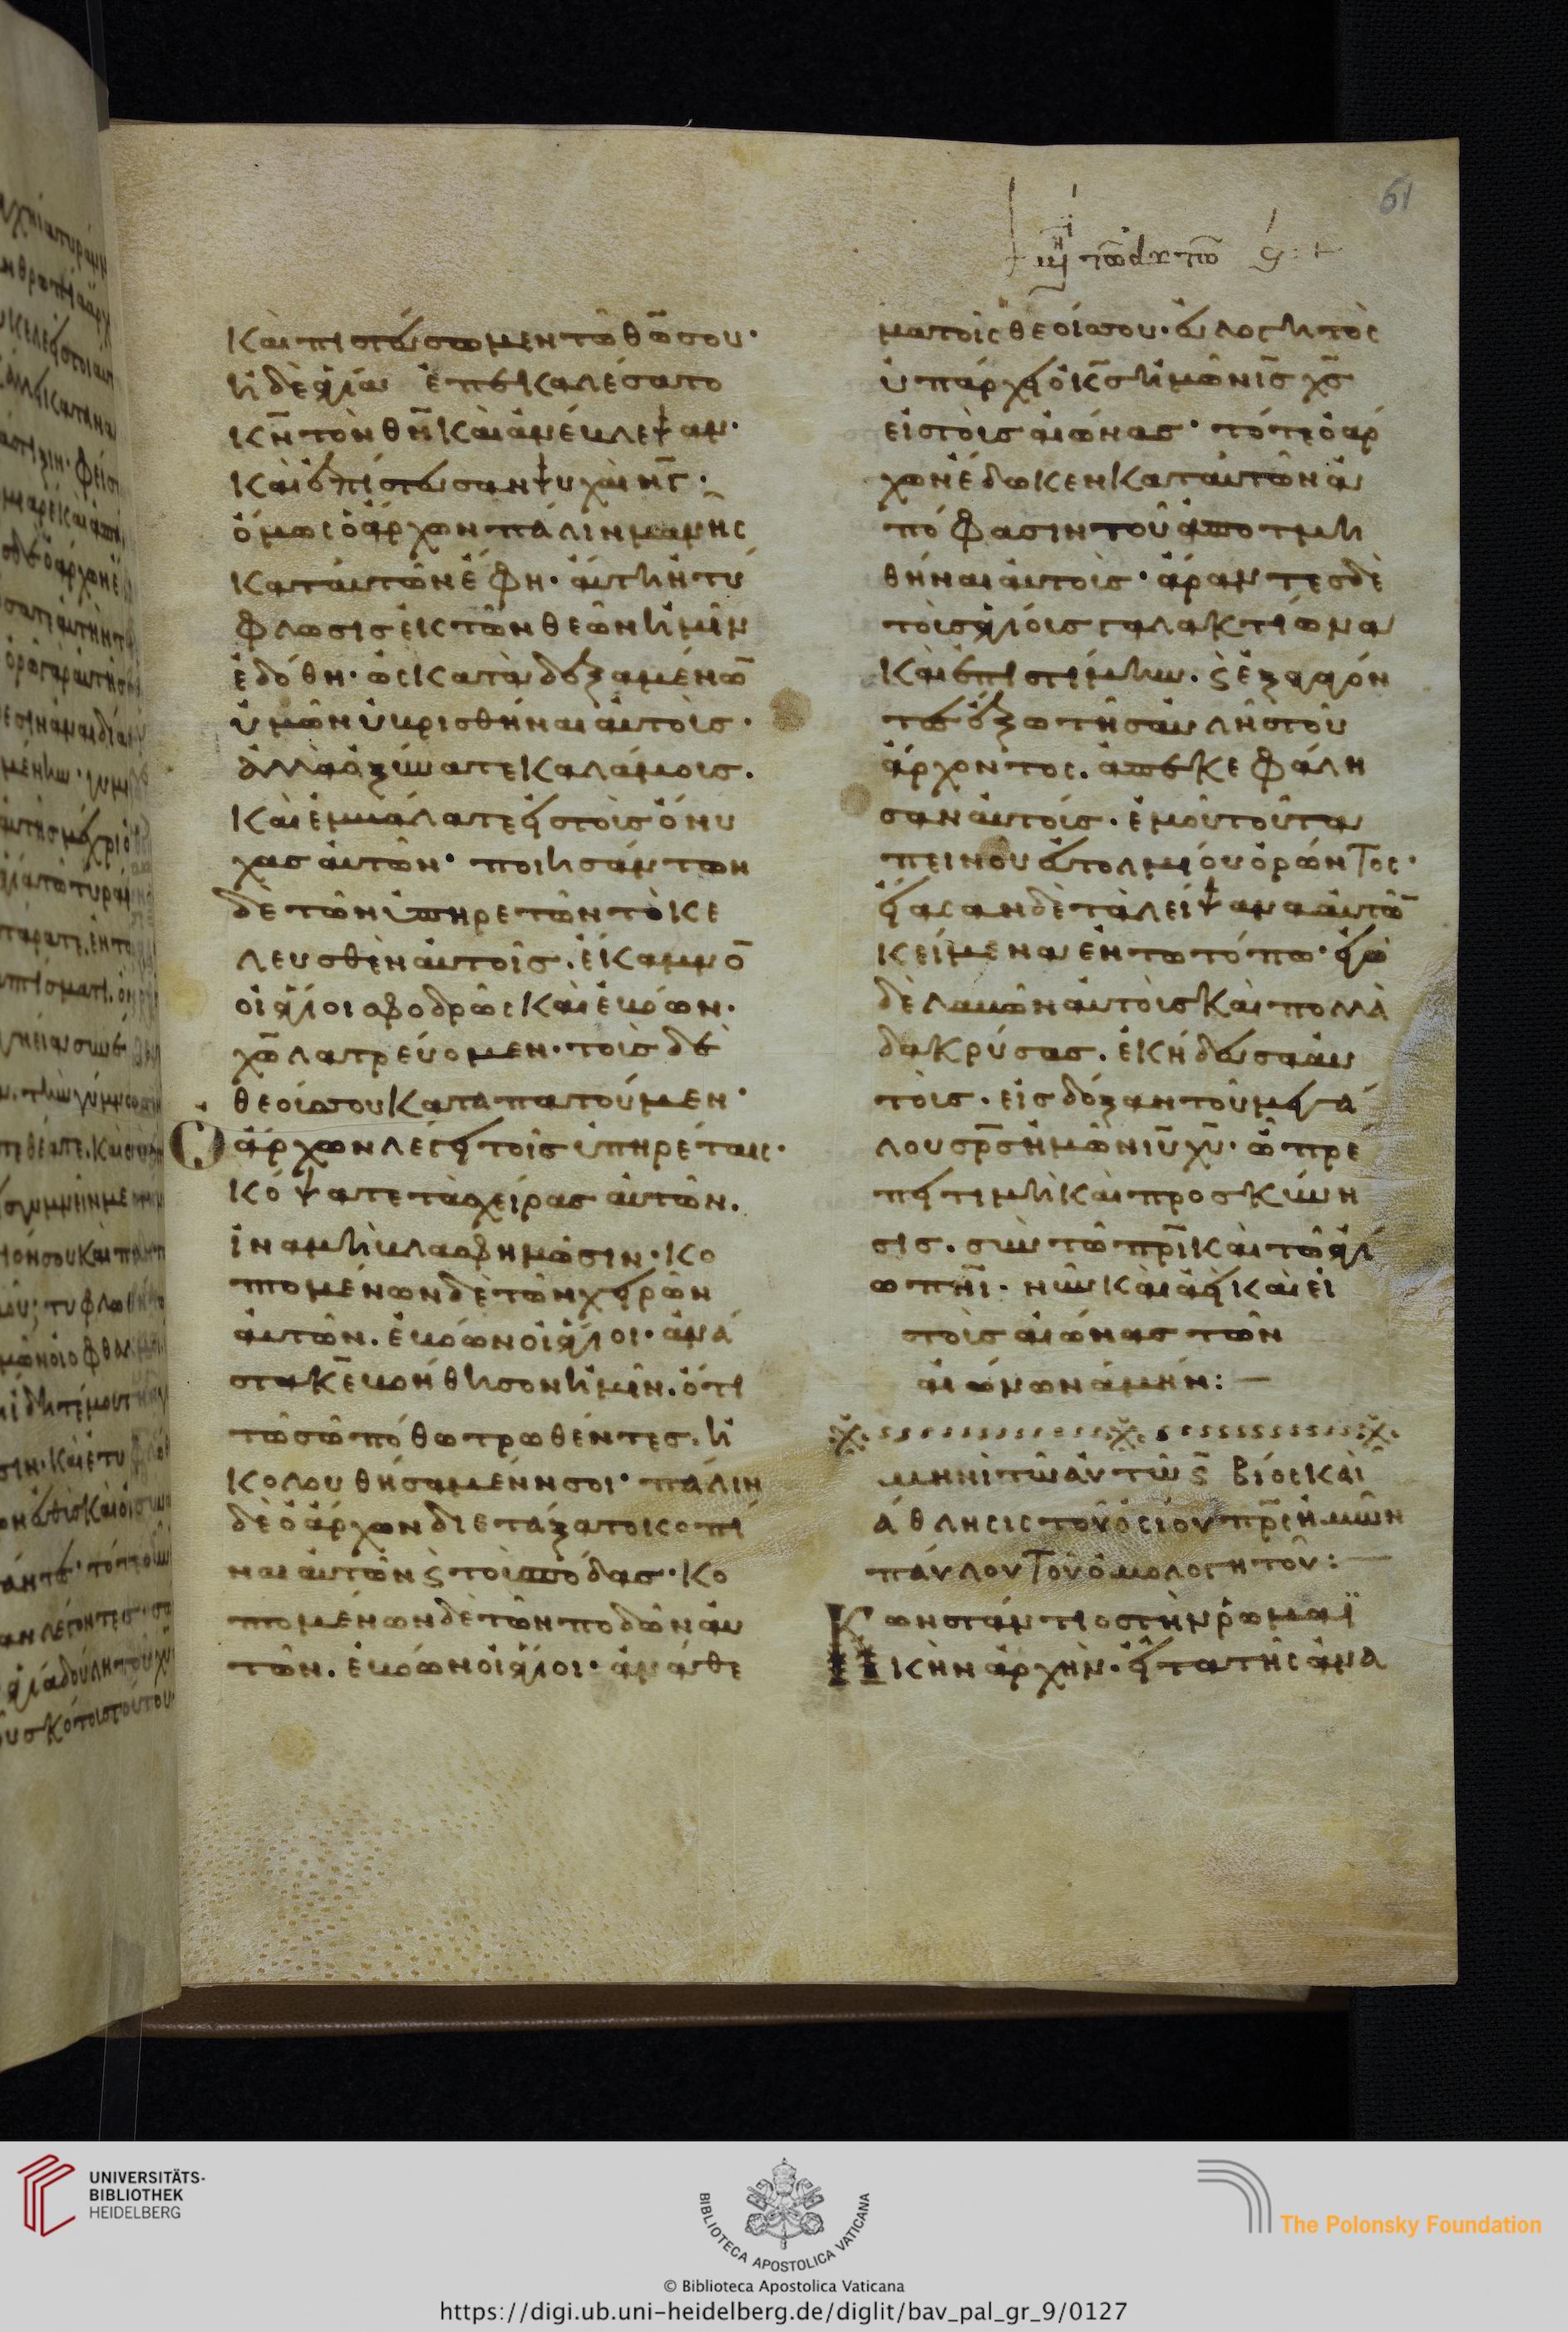 61
καὶ πιστεύσωμεν τῶ θ̅ω̅ σου·
ἡ δὲ ἁγία ἐπεκαλέσατο
κ̅ν̅ τὸν θ̅ν̅ καὶ ἀνέβλεψαν·
καὶ ἐπίστευσαν ψυχαὶ ν̅γ̅·
ὅμως ὁ ἄρχων πάλιν μανεῖς
κατ αυτῶν ἔφη· αὕτη ἡ τύ
φλωσις ἐκ τῶν θεῶν ἡμῖν
ἐδόθη· ὡς καταδεξαμένω̅
ὑμῶν ὑβρισθῆναι αὐτοὺς·
ἀλλὰ ὀξύνατε καλάμους·
καὶ ἐμβάλατε εἰς τοὺς ὄνυ
χας αὐτῶν· ποιησάντων
δὲ τῶν ὑπηρετῶν τὸ κε
λευσθὲν αὐτοῖς· ἔκαμνο̅
οἱ ἅγιοι σφοδρῶς καὶ ἐβόων·
χ̅ω̅ λατρεύομεν· τοὺς δὲ
θεούς σου καταπατούμεν·
Ὁ ἄρχων λέγει τοῖς ὑπηρέταις·
κόψατε τὰς χείρας αὐτῶν·
ἵνα μὴ βλασφημῶσιν· κο
πτομένων δὲ τῶν χειρῶν
αὐτῶν· ἐβόων οἱ ἅγιοι· ἀνά
στα κ̅ε̅ βοήθησον ἡμῖν· ὅτι
τῶ σῶ πόθω τρωθέντες· ἠ
κολουθήσαμέν σοι· πάλιν
δὲ ὁ ἄρχων διετάξατο κοπῆ
ναι αὐτῶν ϛ τοὺς πόδας· κο
πτομένων δὲ τῶν ποδῶν αὐ
τῶν· ἐβόων οἱ ἅγιοι· ἀνάθε
ματοις θεοίς σου· ἄλογητὸς
ὑπάρχει ὁ κ̅ς̅ ἡμῶν ι̅ς̅ χ̅ς̅
εἰς τοὺς αἰῶνας· τότε ὁ ἄρ
χων ἔδωκεν κατ αυτῶν ἀ
πόφασιν τοῦ ἀποτμη
θῆναι αὐτοὺς· ἄραντες δὲ
τοὺς ἁγίους γαλακτίωνα
καὶ ἐπιστήμην· ϛ ἐξαγαγόν
τες ἔξω τῆς αὐλῆς τοῦ
ἄρχοντος· ἀπεκεφάλη
σαν αὐτούς· ἐμοῦ τοῦ τα
πεινοῦ εὐτολμίου ὁρῶντος·
εἴασαν δὲ τὰ λείψανα αὐτῶ̅
κείμενα ἐν τῶ τόπω· ἐγὼ
δὲ λαβὼν αὐτοὺς καὶ πολλὰ
δακρύσας· ἐκήδευσα αὐ
τοὺς· εἰς δόξαν τοῦ μεγά
λου σ̅ρ̅ς̅ ἡμῶν ι̅υ̅ χ̅υ̅· ὧ πρέ
πει τιμὴ καὶ προσκύνη
σις· σὺν τῶ π̅ρ̅ι̅ καὶ τῶ ἁγί
ω π̅ν̅ι̅· νῦν καὶ ἀεὶ καὶ εἰ
ς τοὺς αἰῶνας τῶν
αἰώνων ἀμήν:—
μηνὶ τῶ αὐτῶ ϛ̅ βίος καὶ
ἄθλησις τοῦ ὁσίου π̅ρ̅ς̅ ἡμῶν
παύλου τοῦ ὁμολογητοῦ:—
Κωνστάντιος τὴν ῥωμαϊ
κὴν ἀρχὴν· εἶτα τῆς ἀνα
UNIVERSITÄTS-
BIBLIOTHEK
HEIDELBERG
BIBLIOTECA APOSTOLICA VATICANA
The Polonsky Foundation
© Biblioteca Apostolica Vaticana
https://digi.ub.uni-heidelberg.de/diglit/bav_pal_gr_9/0127